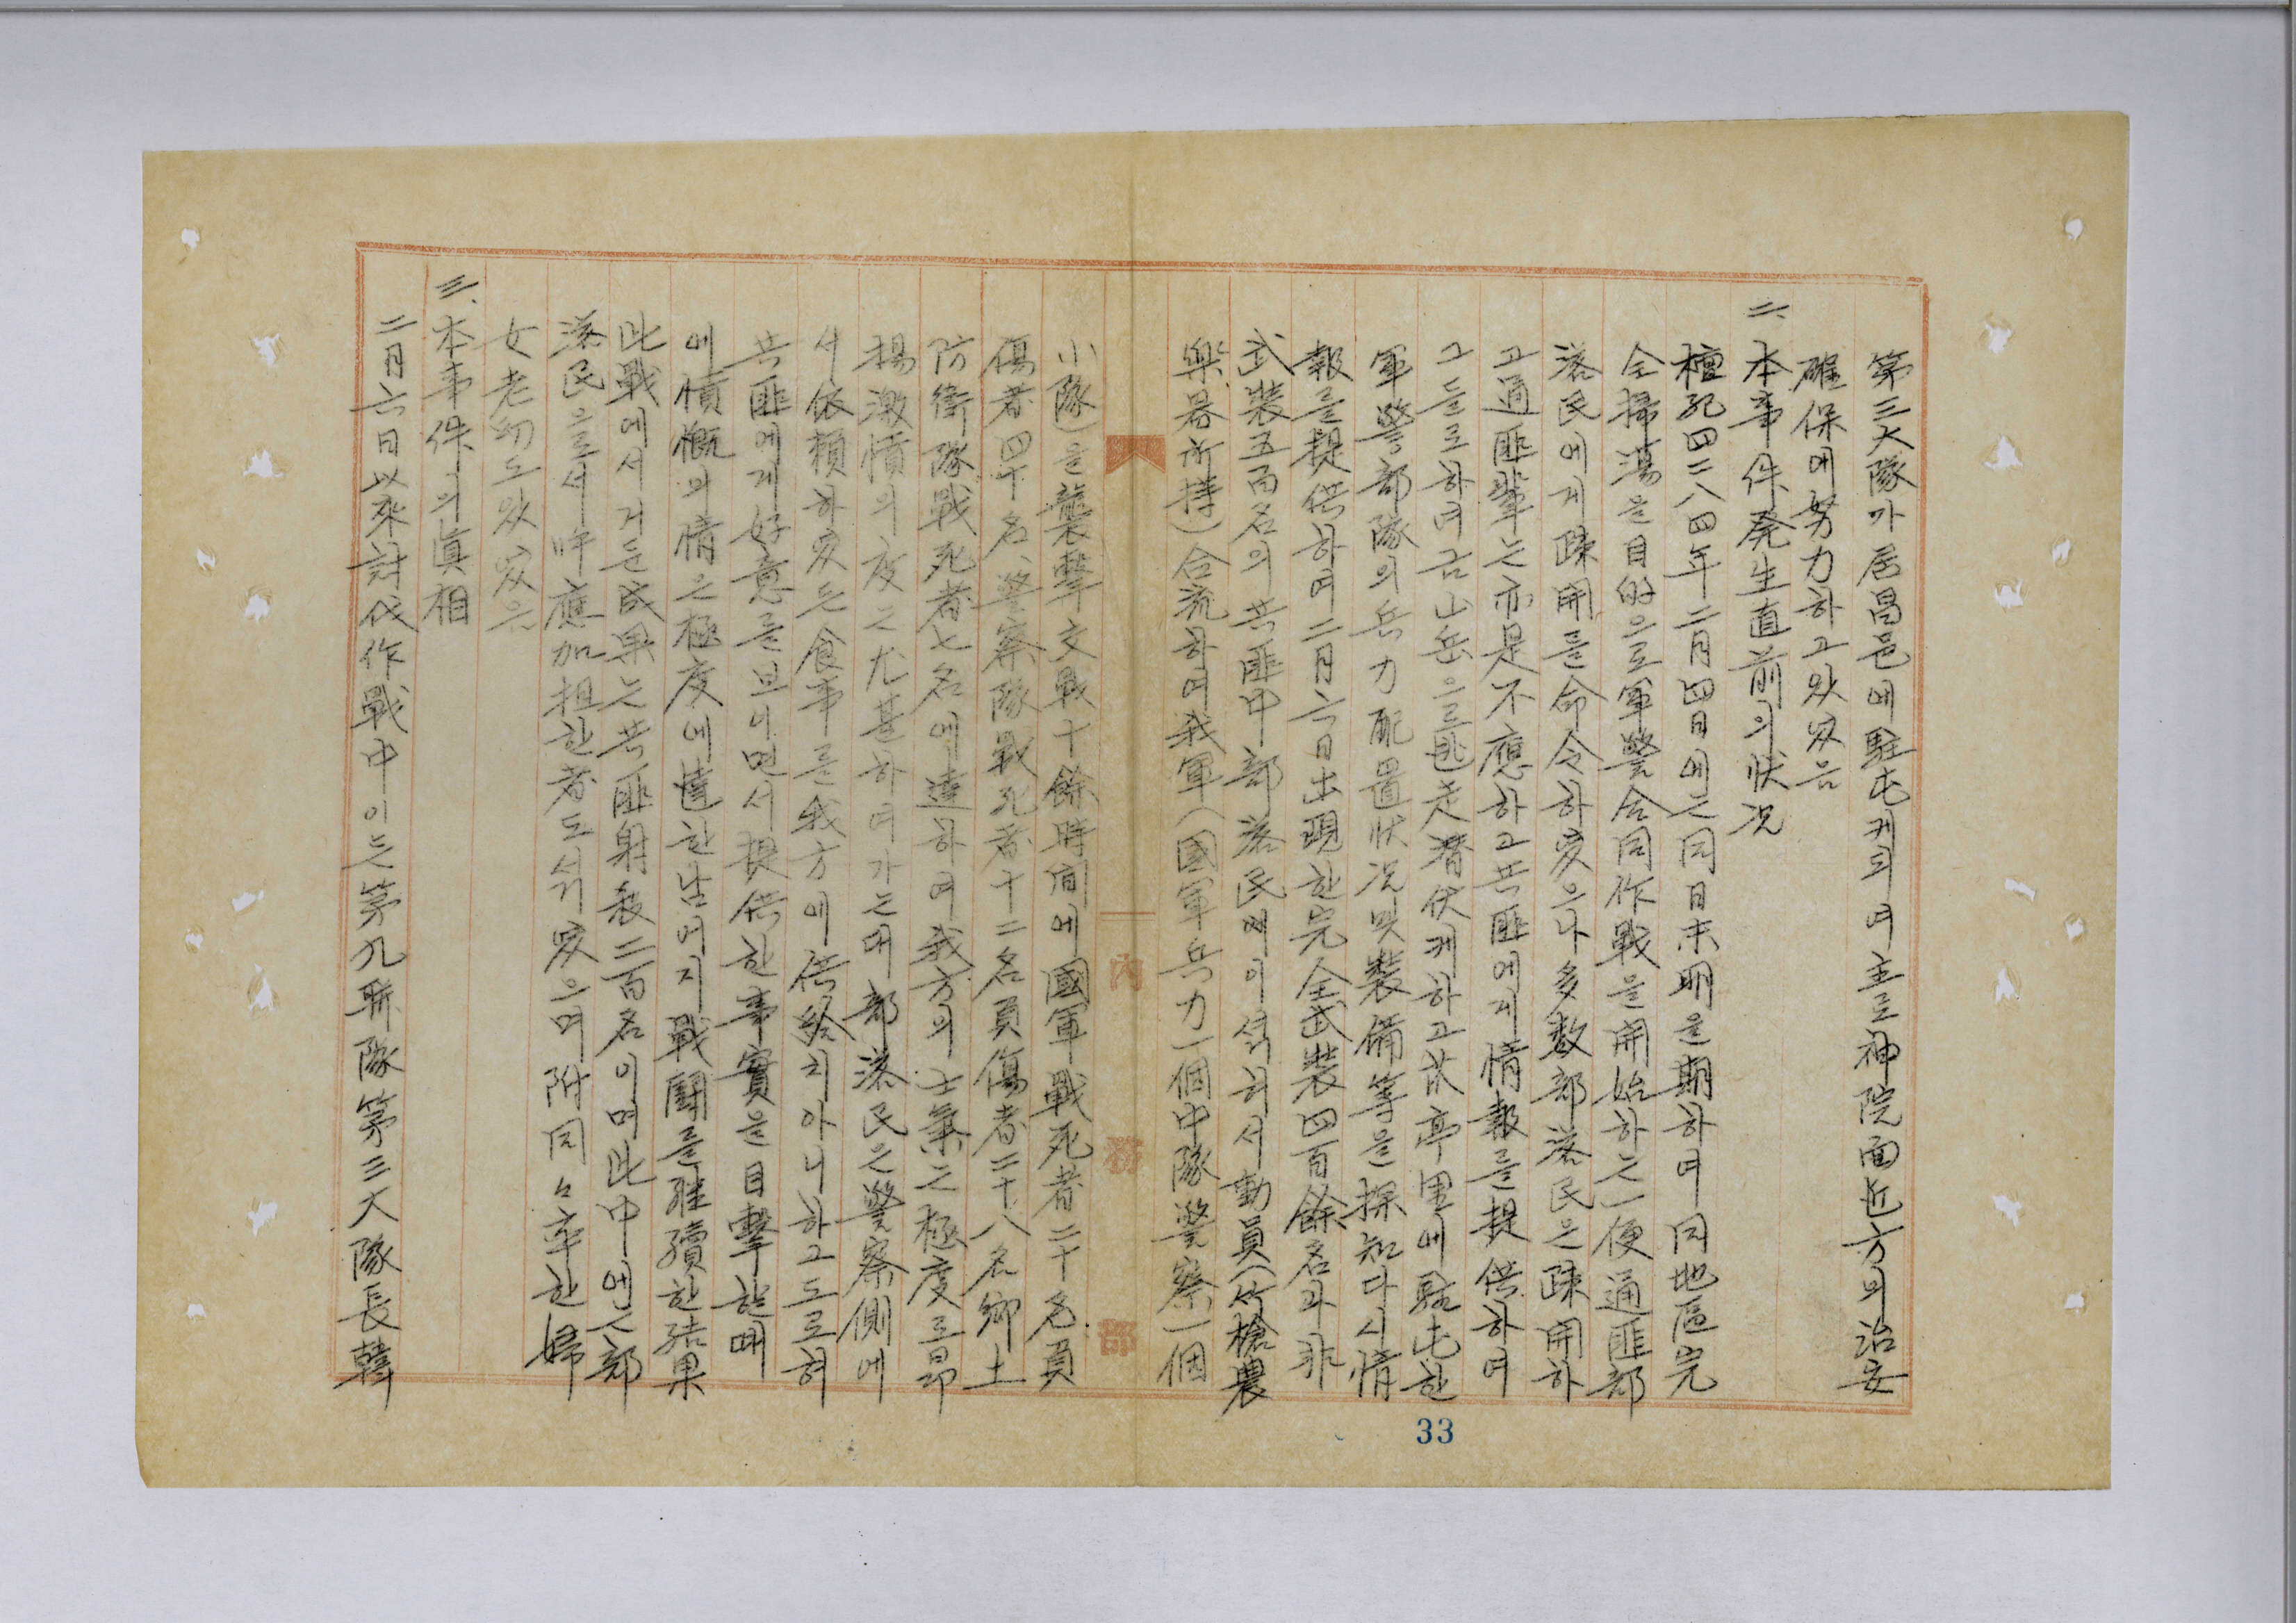 第三大隊가居昌邑에駐屯케되여主로神院面近方의治安
確保에努力하고있었음
二、本事件発生直前의狀況
檀紀四二八四年二月四日에는同日未明을期하여同地區完
全掃湯을目的으로軍警合同作戰을開始하는一便通匪部
落民에게疎開를命令하였으나多数部落民은疎開하
고通匪輩는亦是不應하고共匪에게情報를提供하며
그들로하여금山岳으로逃走潜伏케하고 亭里에駐屯한
軍警部隊의兵力配置狀况및裝備等을探知다시情
報를提供하여二月六日出現한完全武裝四百餘名과非
武裝五百名의共匪中部落民에이섞허서動員(竹槍農
樂器所持)合流하여我軍(國軍兵力一個中隊警察一個
小隊)을襲擊交戰十餘時间에國軍戰死者二十名員
傷者四十名、警察隊戰死者十二名員傷者二十八名鄕土
防衛隊戰死者七名에達하여我方의士氣는極度로昂
揚激憤의度는尤甚하여가는대部落民은警察側에
서依賴하였든食事를我方에供給치아니하고도로혀
共匪에게好意를보니면서提供한事實을目擊한때
에憤慨의情은極度에達한남어지戰鬪를継續한結果
此戰에서거둔成果는共匪射殺二百名이며此中에는部
落民으로서呼應加担한者도섞였으며附同々率한婦
女老幼도있었음
三、本事件의眞相
二月六日以來討伐作戰中이든第九聯隊第三大隊長韓
內務部
33